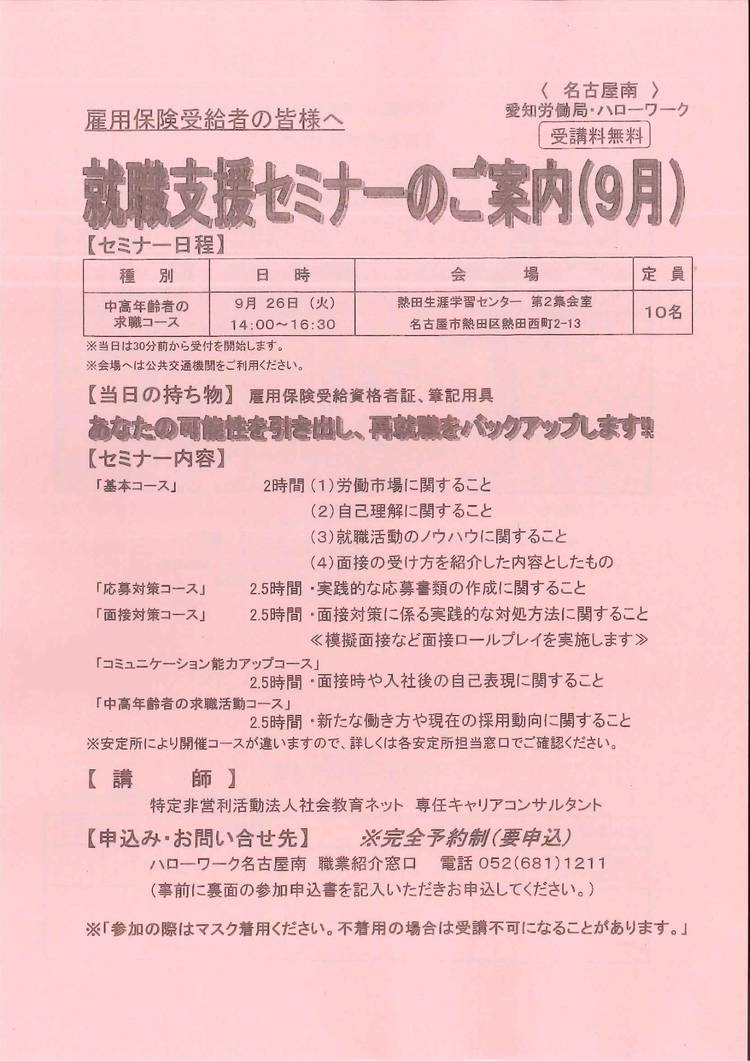 〈 名古屋南 〉
愛知労働局・ハローワーク
雇用保険受給者の皆様へ
受講料無料
就職支援セミナーのご案内(9月)
【セミナー日程】
種 別 日 時 会 場 定 員
中高年齢者の求職コース 9月 26日（火） 14:00～16:30 熱田生涯学習センター 第2集会室 名古屋市熱田区熱田西町2-13 10名
※当日は30分前から受付を開始します。
※会場へは公共交通機関をご利用ください。
【当日の持ち物】 雇用保険受給資格者証、筆記用具
あなたの可能性を引き出し、再就職をバックアップします!!
【セミナー内容】
「基本コース」 2時間（1）労働市場に関すること
（2）自己理解に関すること
（3）就職活動のノウハウに関すること
（4）面接の受け方を紹介した内容としたもの
「応募対策コース」 2.5時間・実践的な応募書類の作成に関すること
「面接対策コース」 2.5時間・面接対策に係る実践的な対処方法に関すること
≪模擬面接など面接ロールプレイを実施します≫
「コミュニケーション能力アップコース」
2.5時間・面接時や入社後の自己表現に関すること
「中高年齢者の求職活動コース」
2.5時間・新たな働き方や現在の採用動向に関すること
※安定所により開催コースが違いますので、詳しくは各安定所担当窓口でご確認ください。
【 講 師 】
特定非営利活動法人社会教育ネット 専任キャリアコンサルタント
【申込み・お問い合せ先】 ※完全予約制(要申込)
ハローワーク名古屋南 職業紹介窓口 電話 052(681)1211
(事前に裏面の参加申込書を記入いただきお申込してください。)
※「参加の際はマスク着用ください。不着用の場合は受講不可になることがあります。」